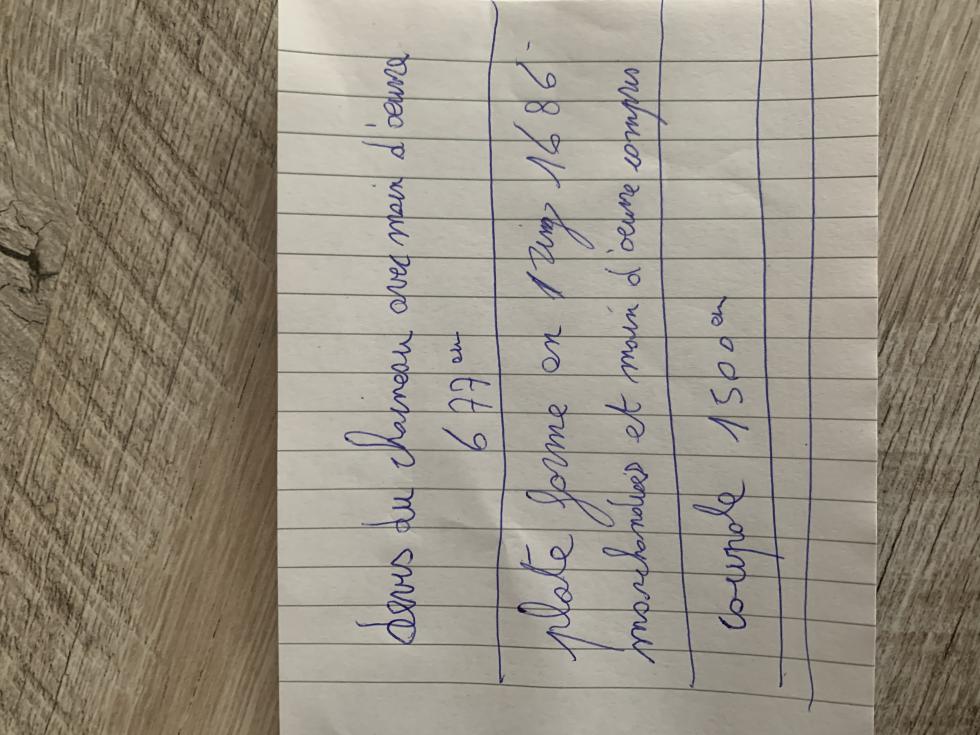 devis du chaineau avec main d'oeuvre
677 eu
plate forme en 1 zing 1686-
marchandises et main d'oeuvre compris
coupole 1500 eu